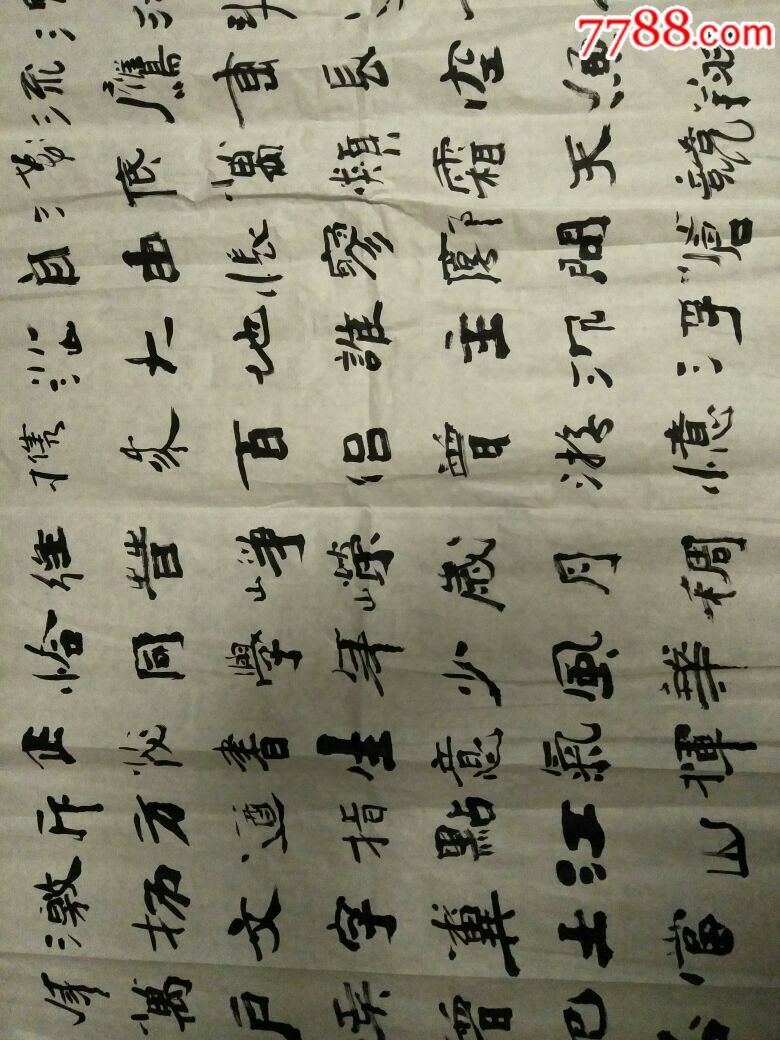 7788.com
流鷹击長空魚翔
淺底萬類霜天競
自由悵寥廓問蒼
茫大地誰主沉浮
携來百侣曾游憶
往昔崢嶸歲月稠
恰同學年少風華
正茂書生意氣揮
斥方遒指點江山
激揚文字糞土當
年萬户曾